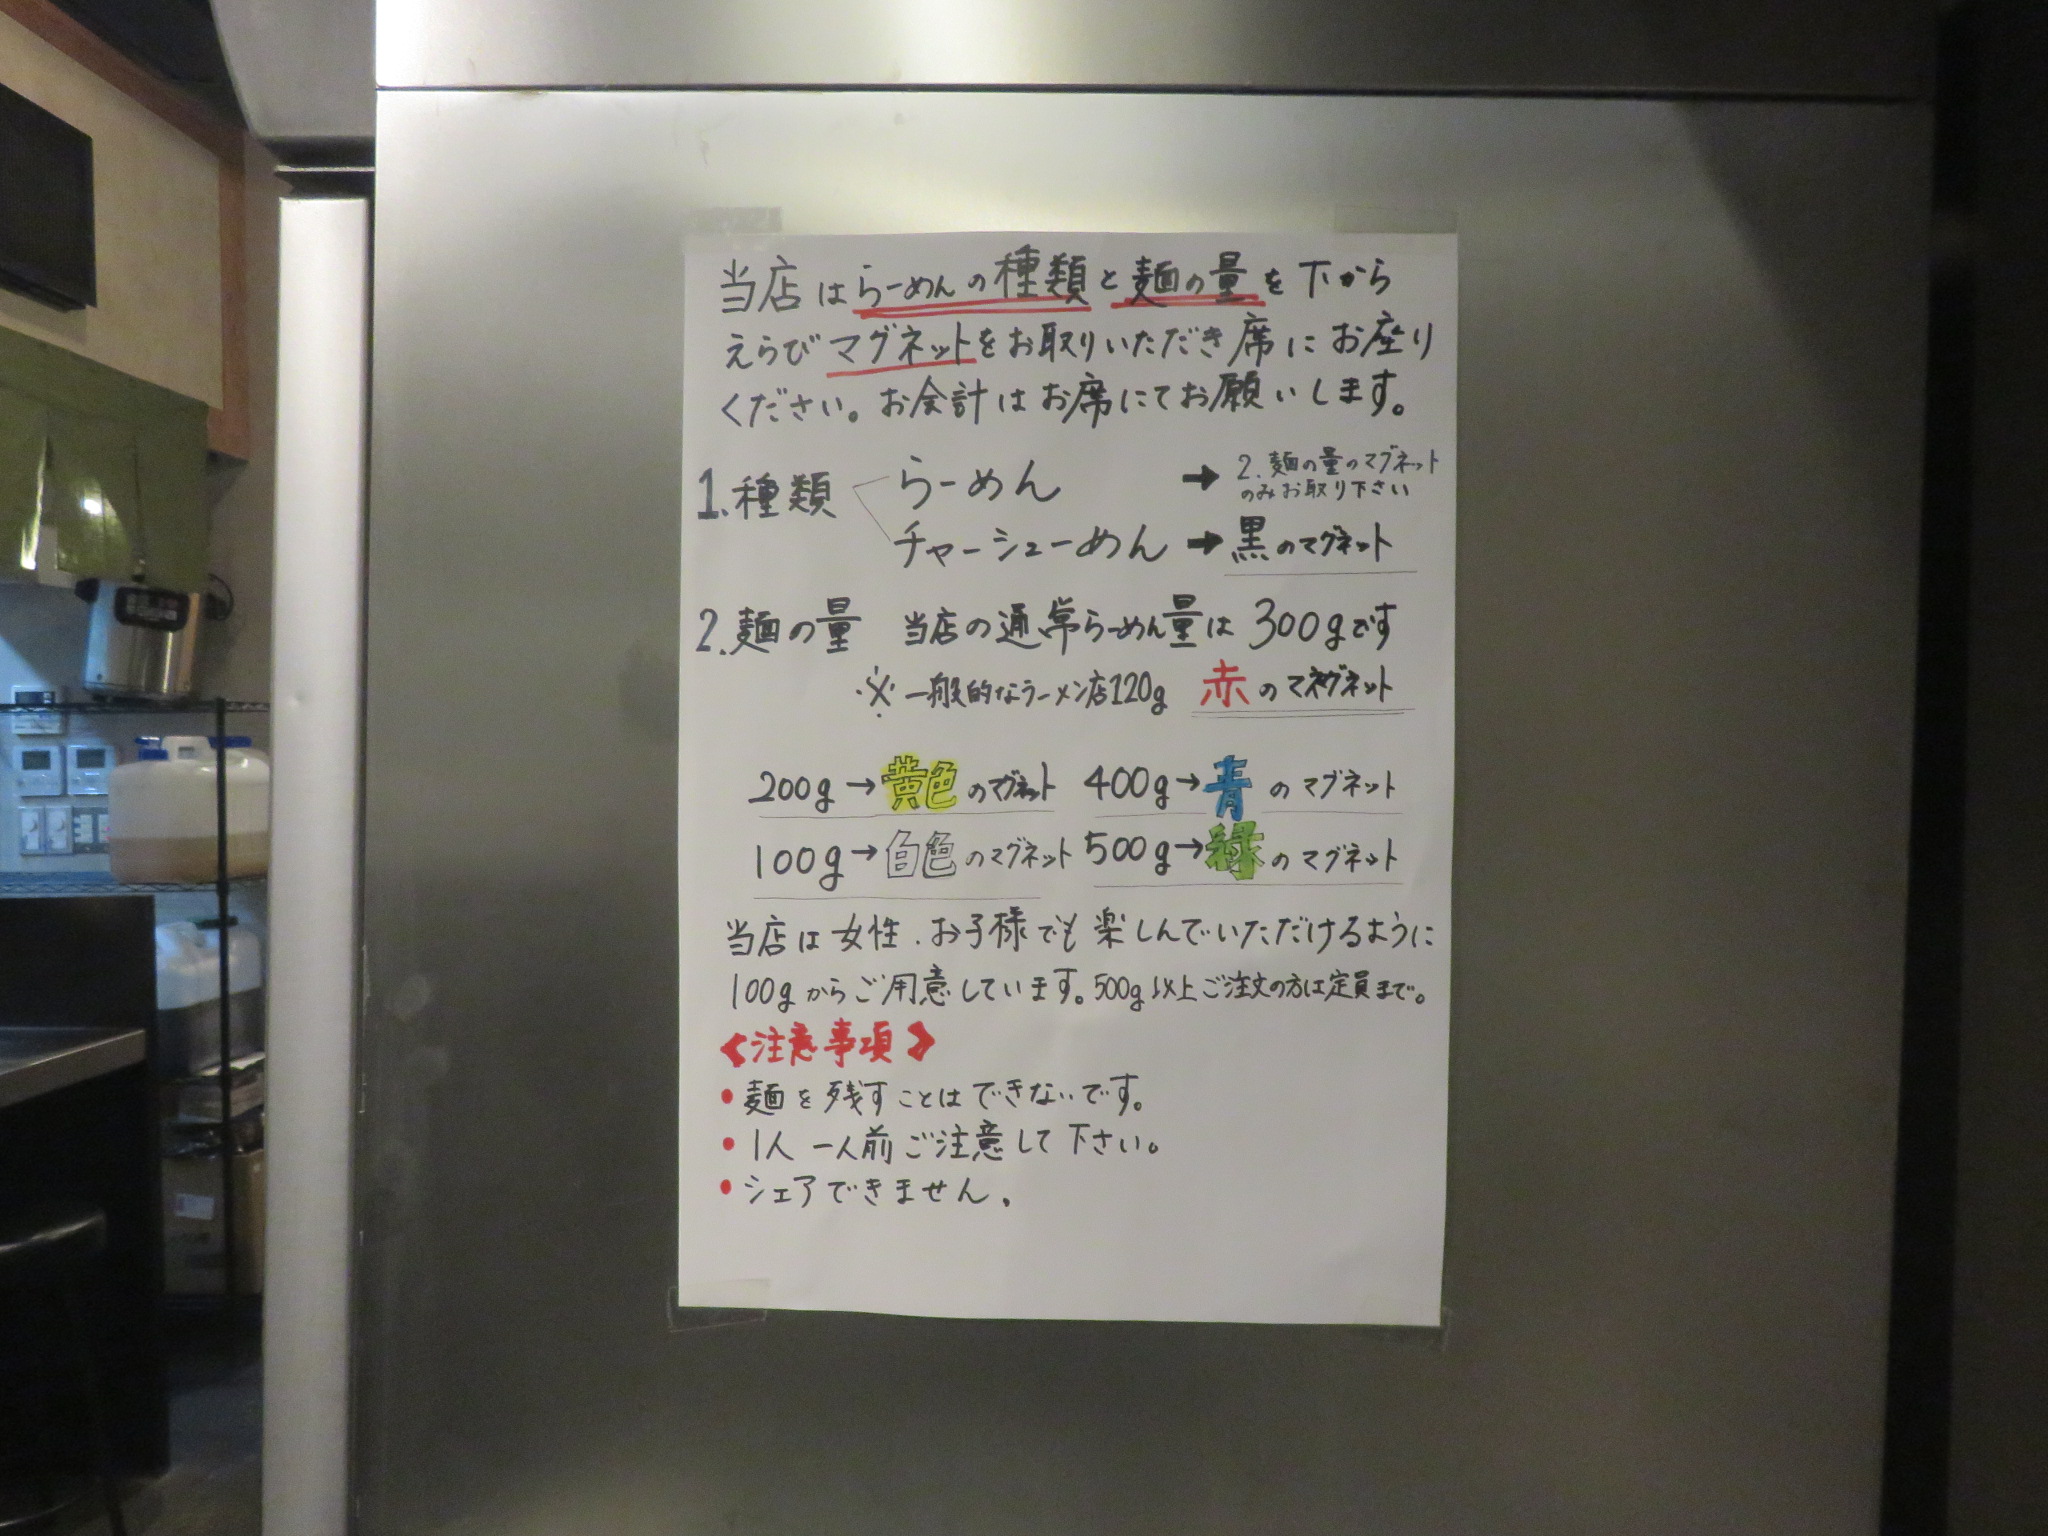 当店はらーめんの種類と麺の量を下から
えらびマグネットをお取りいただき席にお座り
ください。お会計はお席にてお願いします。
1.種類 らーめん → 2.麺の量のマグネット
のみお取り下さい
チャーシューめん → 黒のマグネット
2.麺の量 当店の通常らーめん量は300gです
※一般的なラーメン店120g 赤のマグネット
200g→黄色のマグネット 400g→青のマグネット
100g→白色のマグネット 500g→緑のマグネット
当店は女性.お子様でも楽しんでいただけるように
100gからご用意しています。500g以上ご注文の方は定員まで。
<注意事項>
•麺を残すことはできないです。
•1人一人前ご注意して下さい。
•シェアできません.